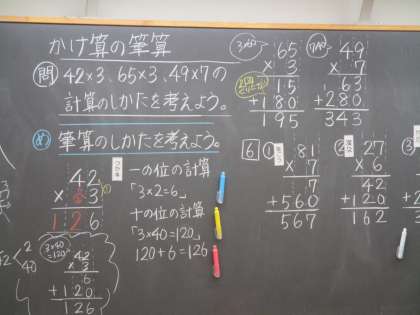 かけ算の筆算
問 42×3、65×3、49×7の
計算のしかたを考えよう。
め 筆算のしかたを考えよう。
42
×3
126
一の位の計算
「3×2=6」
十の位の計算
「3×40=120」
120+6=126
42
2
40
3×40
=120
42
×3
6
+120
126
65
×3
15
+180
195
49
×7
63
+280
343
6
①
81
×7
7
+560
567
②
27
×6
42
+120
162
③